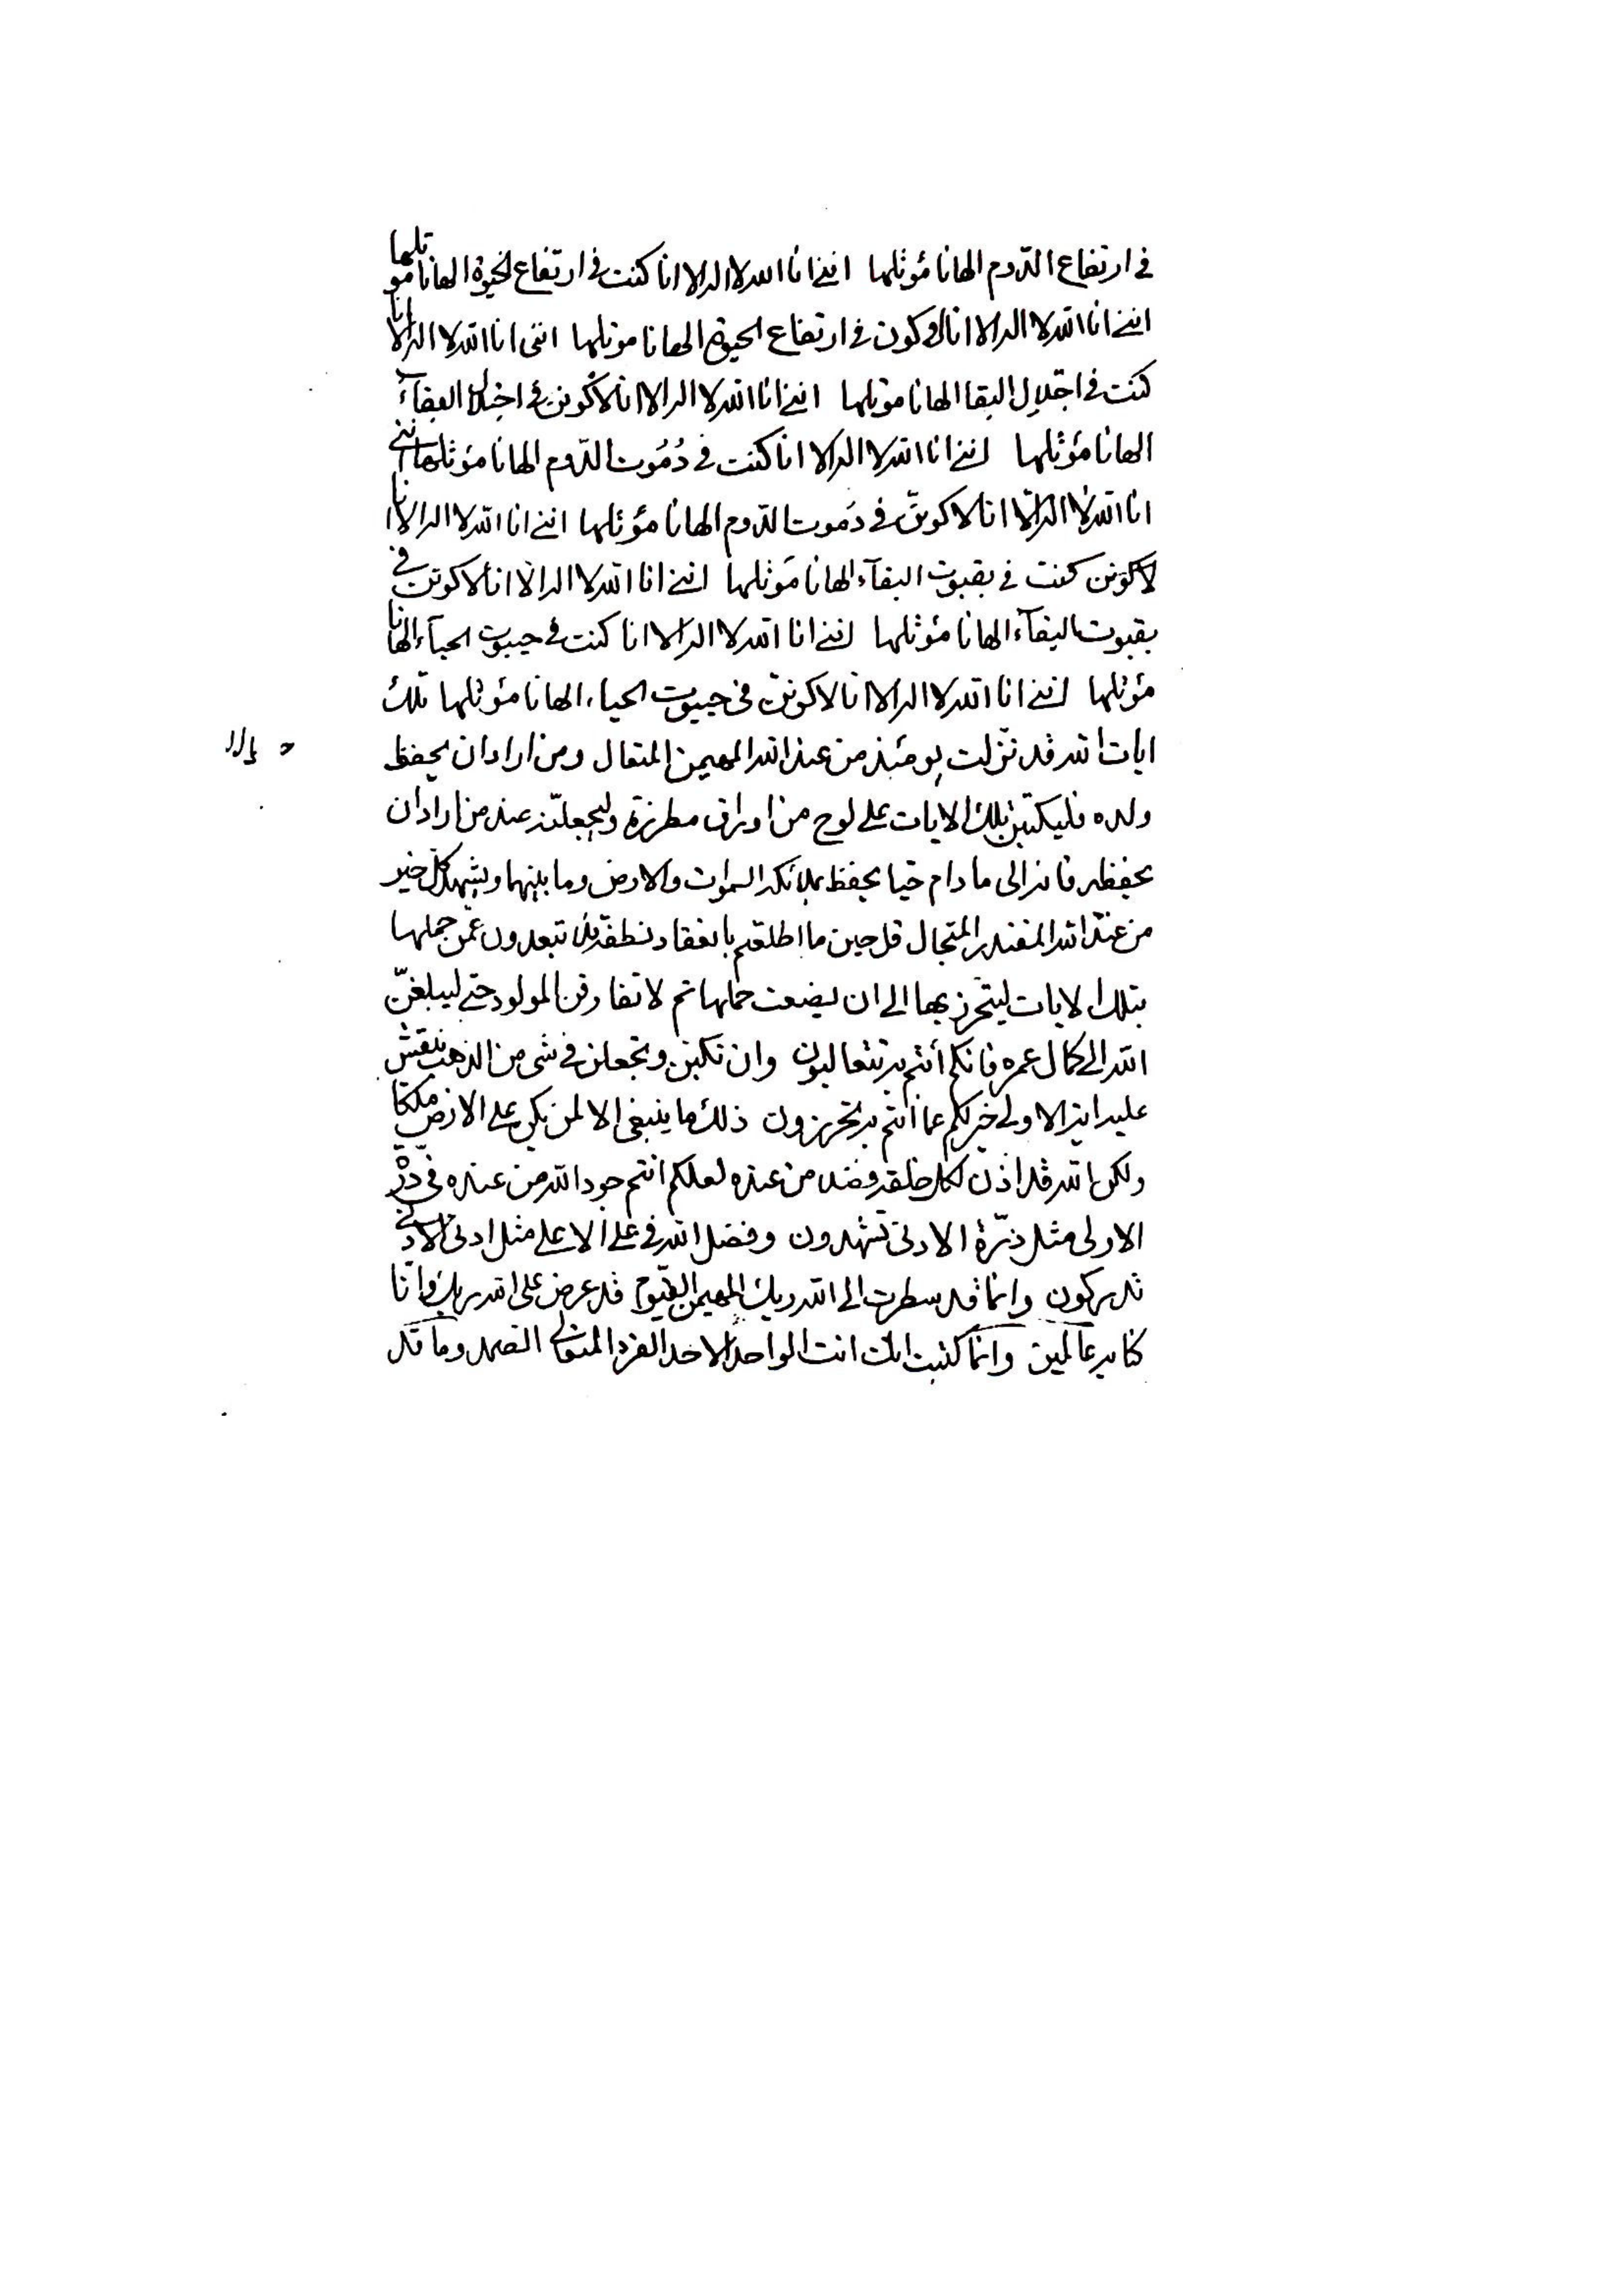 في ارتفاع الدّوم الهانا مؤئلها انني انا الله لا اله الا انا كنت في ارتفاع الحيوة الهانا مؤئلها
انني انا الله لا اله الا انا لاكونن في ارتفاع الحيوة الهانا موئلها انني انا الله لا اله الا انا
كنت في اجتلال البقا الهانا موئلها انني انا الله لا اله الا انا لاكونن في اجتلال البقآء
الهانا مؤئلها انني انا الله لا اله الا انا كنت في دُمُوت الدّوم الهانا مؤئلها انني
انا الله لا اله الّا انا لاكوننّ في دَموت الدّوم الهانا مؤئلها انني انا الله لا اله الا انا
لاكونن كنت في بقيوت البقآء الهانا مَوئلها انني انا الله لا اله الا انا لاكونن في
بقيوت البقآء الهانا مؤئلها انني انا الله لا اله الا انا كنت في حييوت الحيآء الهانا
مؤئلها انني انا الله لا اله الا انا لاكوننّ في حييوت الحياء الهانا مؤئلها تلك
ايات الله قد نزّلت يومئذ من عند الله المهيمن المتعال ومن اراد ان يحفظ
ولده فليكتبن تلك الايات على لوح من اوراق مطرزة وليجعلنّه عند من اراد ان
يحفظه فانه الى ما دام حيا يحفظ ملائكة السموات والارض وما بينهما ويشهد كل خير
من عند الله المقتدر المتجال قل حين ما اطلقتم بانعقاد نطفة تبعدون عمن حملها
بتلك الايات ليتحرز بها الى ان ليضعت حملها ثم لا تفارقن المولود حتى ليبلغنّ
الله الى كمال عمره فانكم أنتم به تتعاليون وان تكبن وتجعلن في شى من الذهب ينقش
عليه اية الاولى خير لكم عما انتم به تحرزون ذلك ما ينبغى الا لمن يكن على الارض ملكا
ولكن الله قد اذن لكل خلقه وفضله من عنده لعلكم انتم جود الله من عنده في ذرّ
الاولى مثل ذرّة الادنى تشهدون وفضل الله في على الاعلى مثل ادنى الادنى
تدركون وانما قد سطرت الى الله ربك المهيمن القيّوم قد عرض على الله ربك وانّا
كنا به عالمين وانما كتبت انك انت الواحد الاحد الفرد المتعالى الصمد وما قد